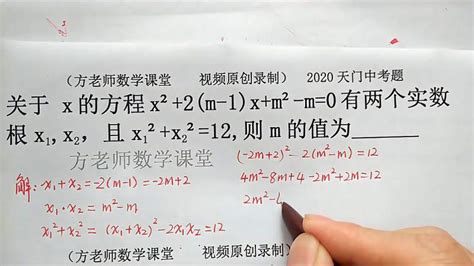 （方老师数学课堂 视频原创录制） 2020天门中考题
关于 x的方程x²+2(m-1)x+m²-m=0有两个实数
根x₁,x₂，且x₁²+x₂²=12,则m的值为______
方老师数学课堂
解: x₁+x₂=-2(m-1)=-2m+2
x₁·x₂=m²-m
x₁²+x₂²=(x₁+x₂)²-2x₁x₂=12
(-2m+2)²-2(m²-m)=12
4m²-8m+4-2m²+2m=12
2m²-
（方老师数学课堂 视频原创录制）